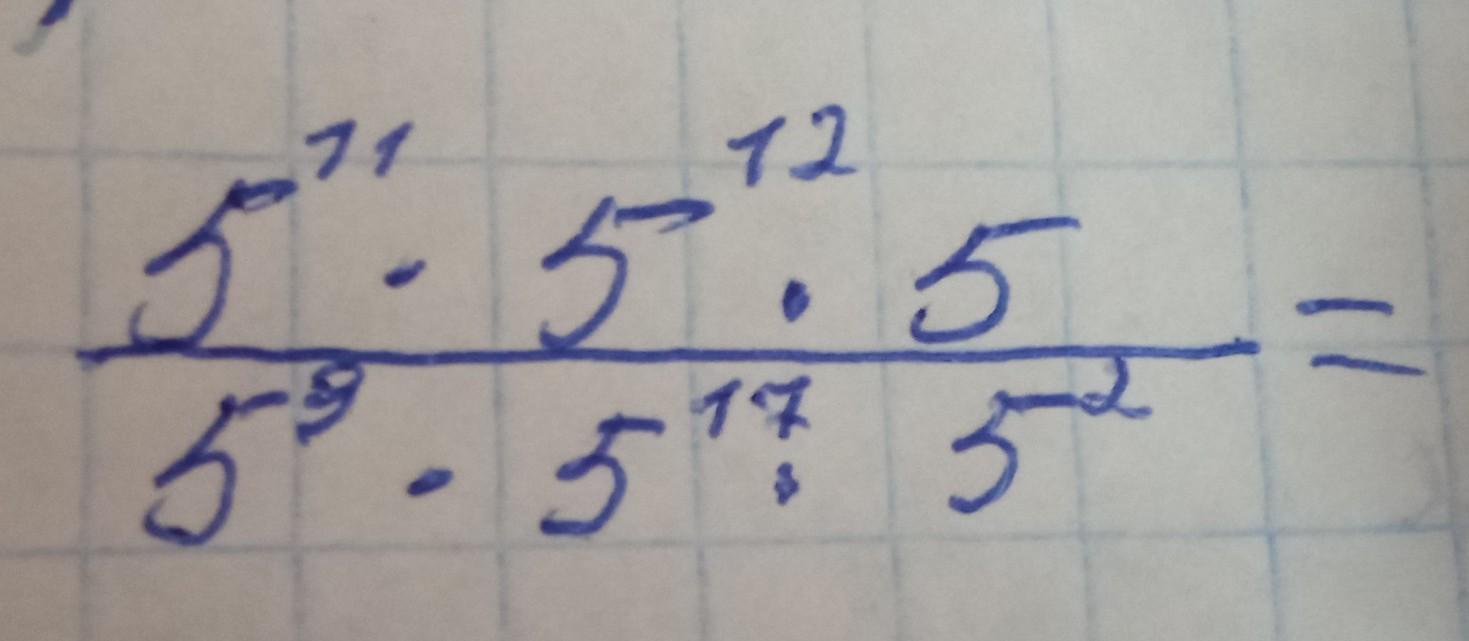 5¹¹ · 5¹² · 5 =
5⁹ · 5¹⁷ · 5²